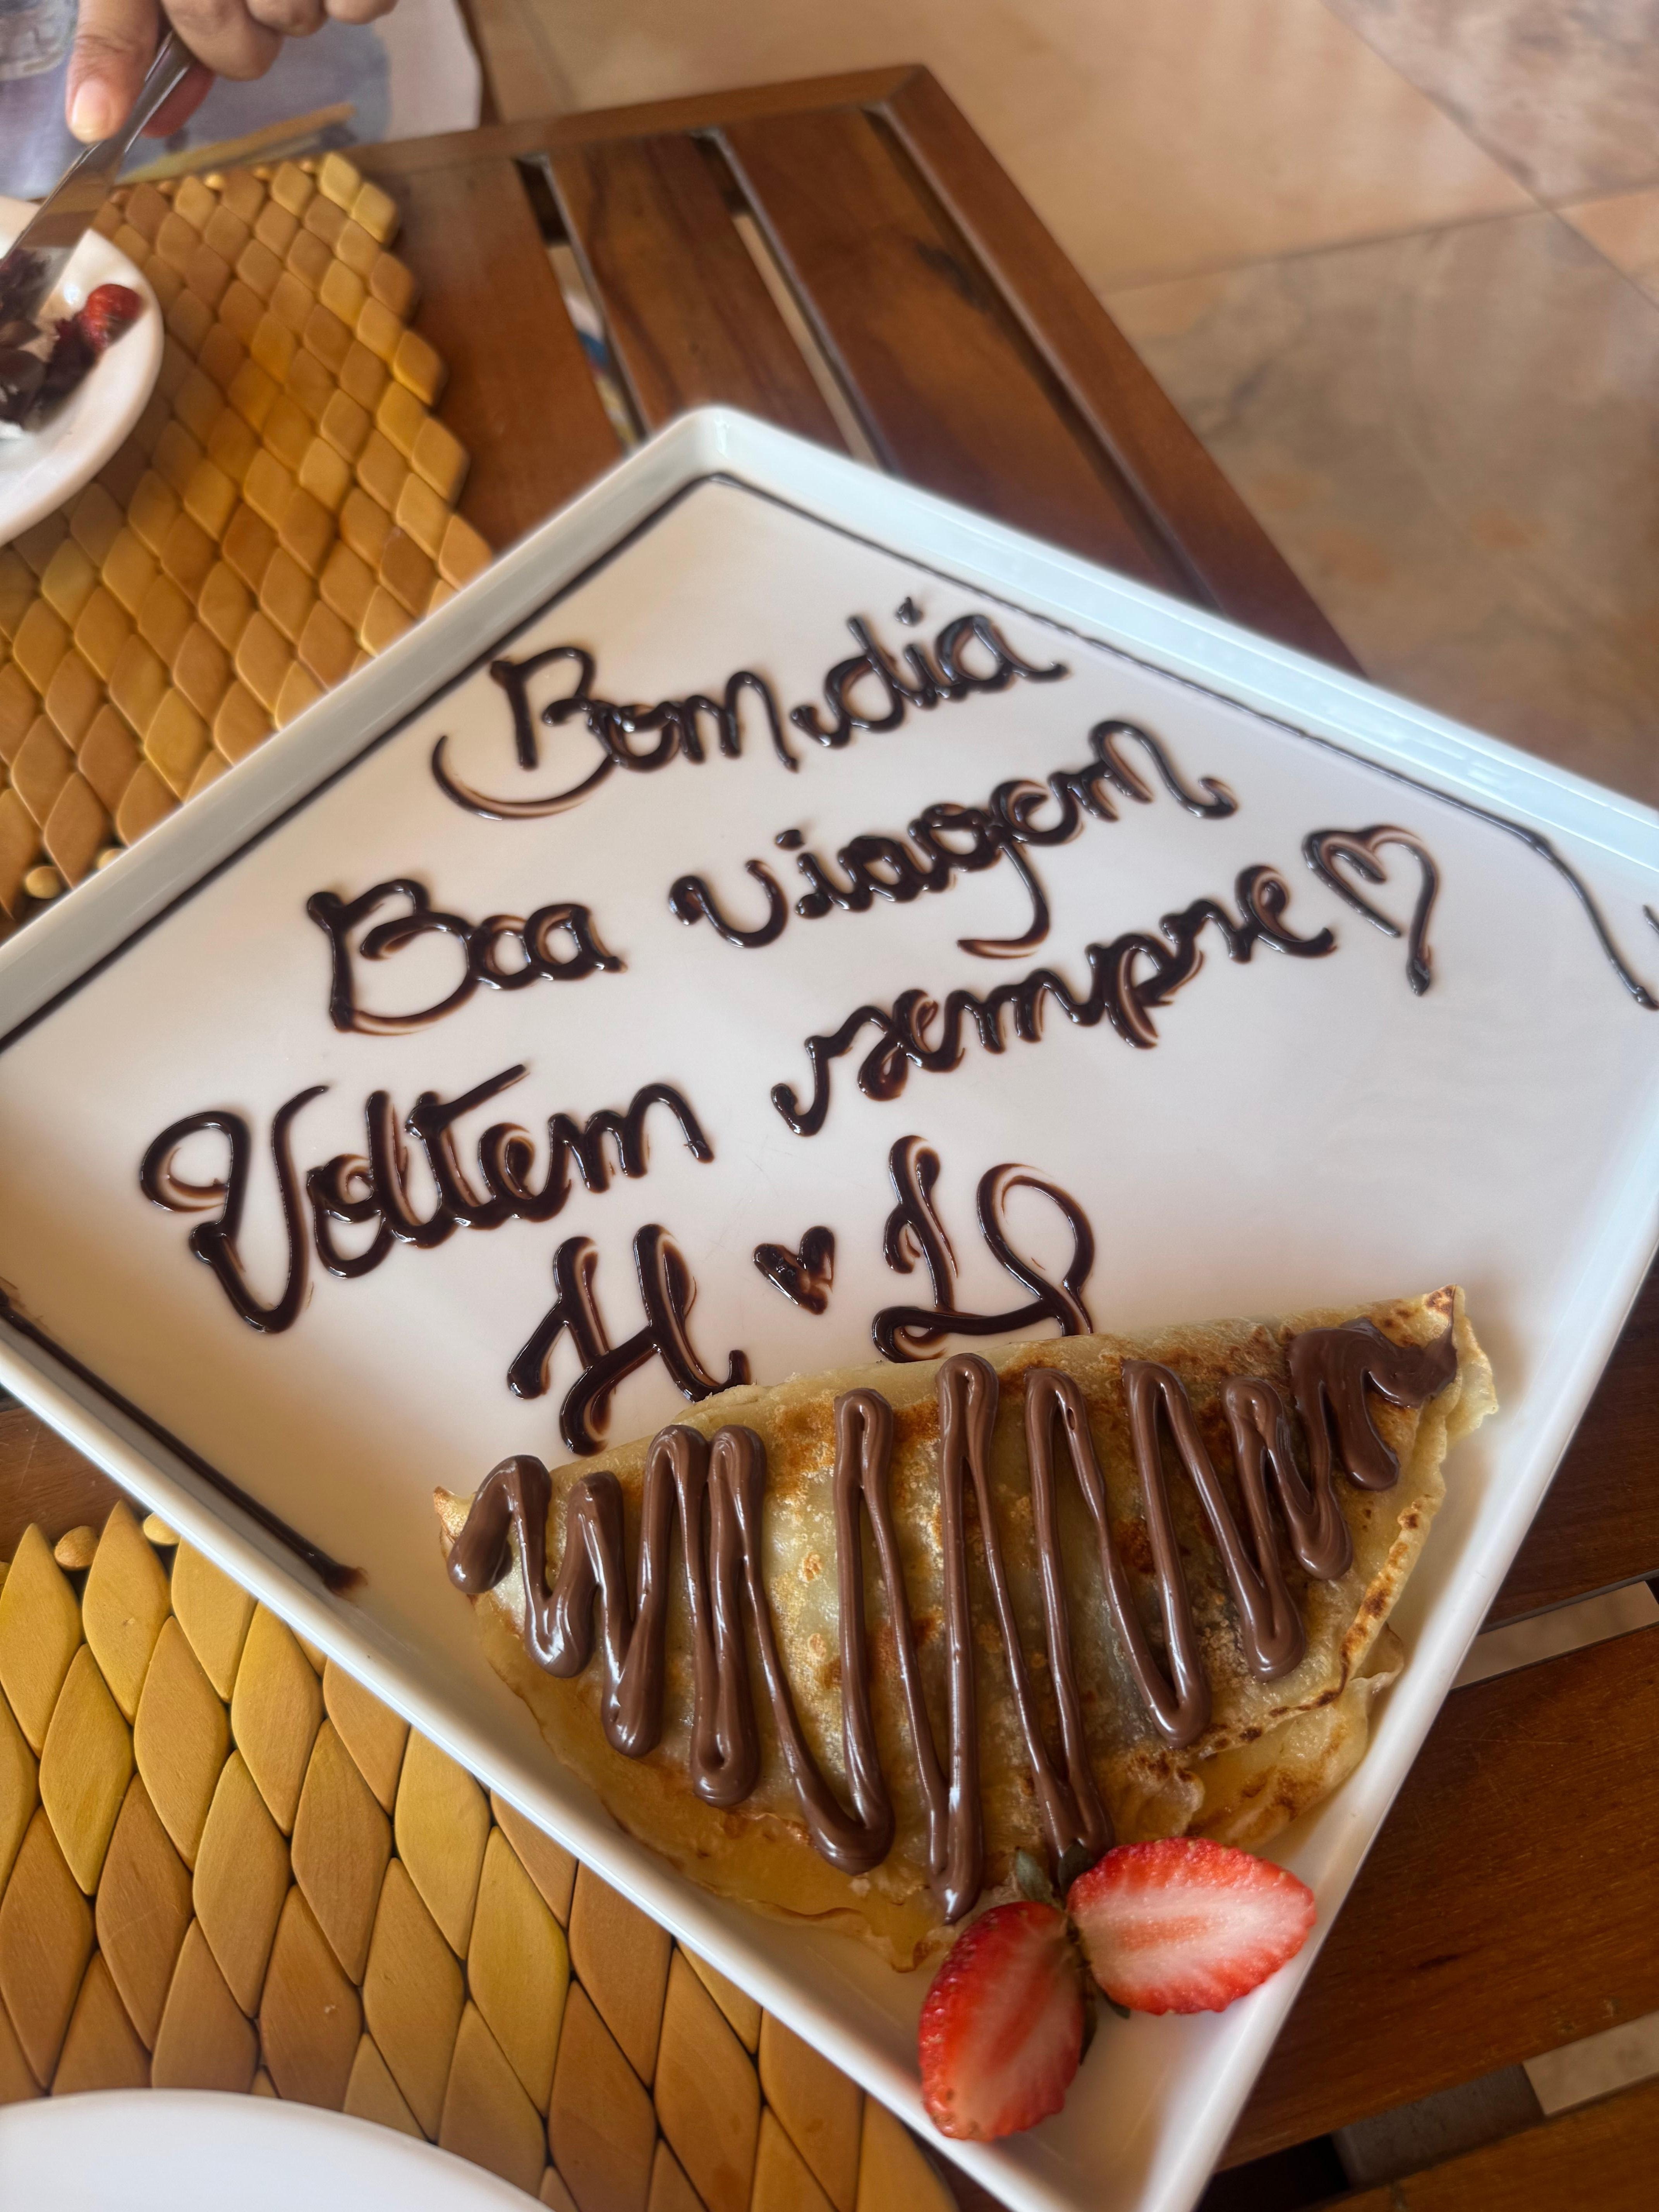 Bom dia
Boa viagem
Voltem sempre ♡
H ♥ L